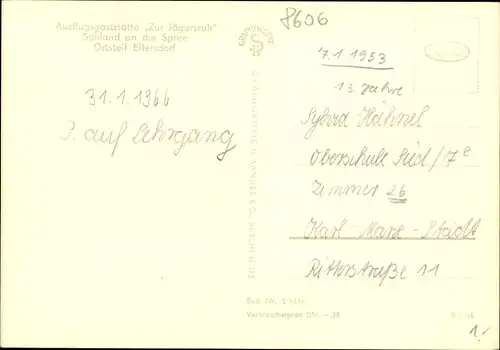 Ausflugsgaststätte „Zur Jägersruh"
Sohland an der Spree
Ortsteil Ellersdorf
8606
7.1.1953
13 Jahre
31.1.1966
P. auf Lehrgang
Sylvia Hähnel
Oberschule Süd/7e
Zimmer 26
Karl-Marx-Stadt
Ritterstraße 11
Best.-Nr.
Verbraucherpreis DM -,25
1,-